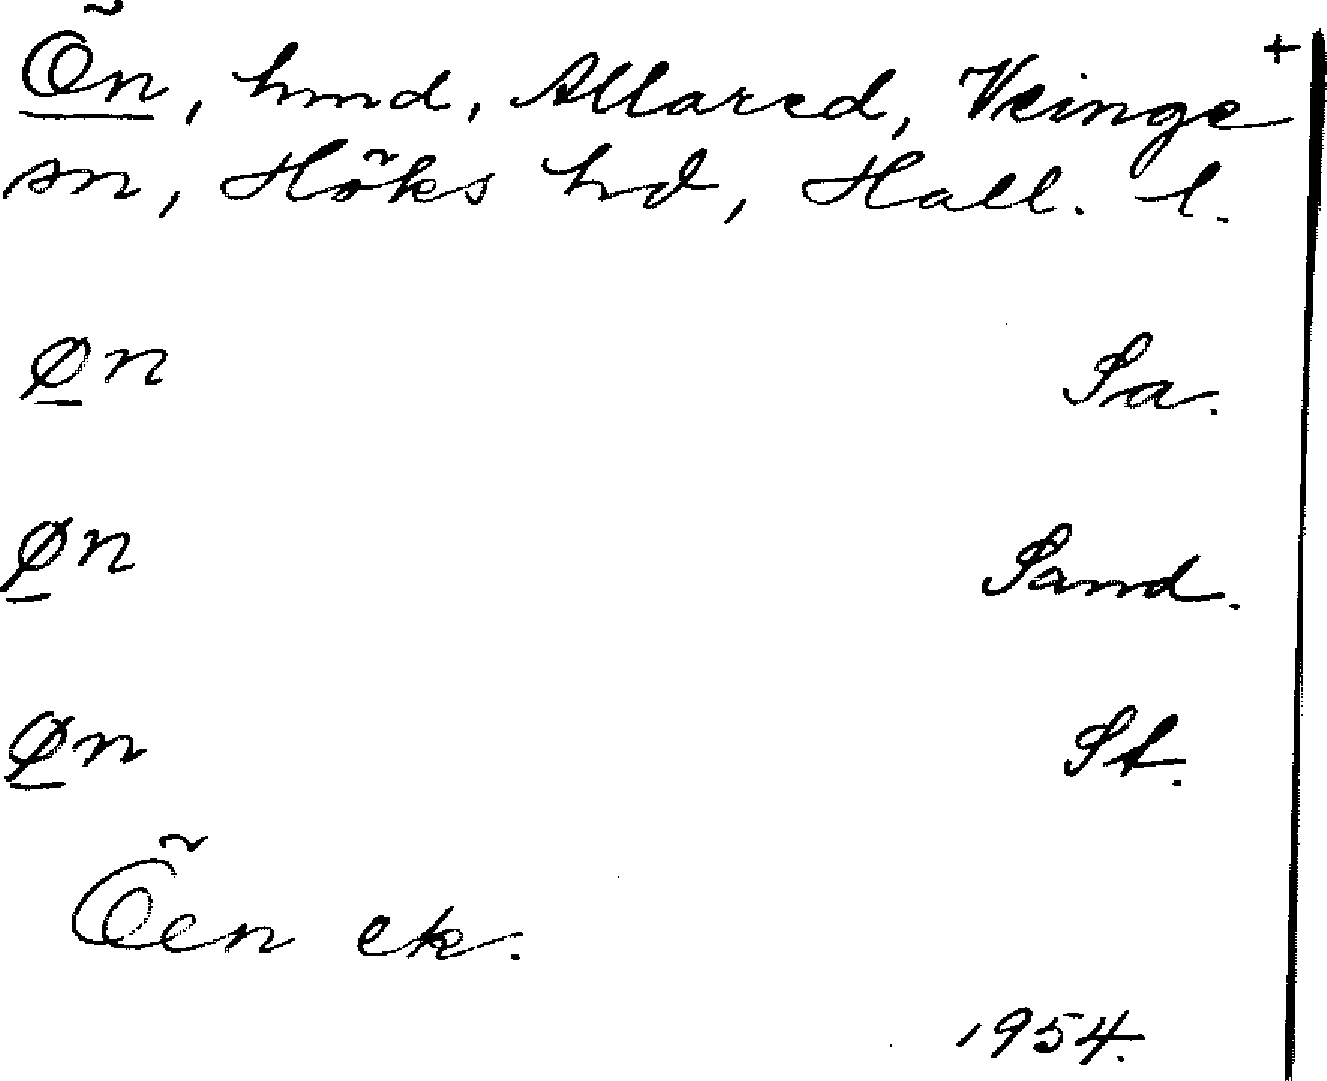 Ön, hmd, Allared, Veinge +
sn, Höks hd, Hall. l.
ø̱n Sa.
ø̱n Sand.
ø̱n St.
Öen ek.
1954.